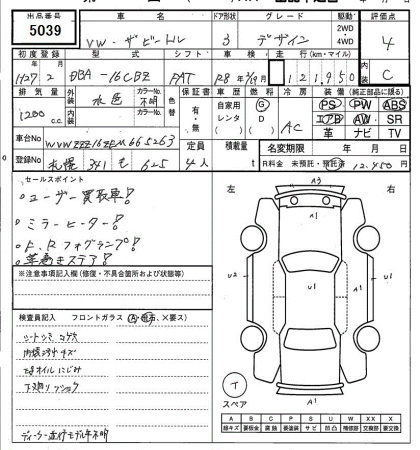 出品番号 車名 ドア形状 グレード 駆動 評価点
5039 VW・ザビートル 3 デザイン 2WD・4WD 4
初度登録 型式 シフト 車検 走行(km・マイル) 内装
H27/2 DBA-16CBZ FAT R8年2/19月 121,950 C
排気量 外装 水色 カラーNo. 不明 色替 保証書 自家用 レンタ 燃料 G D 冷房 装備(純正部品に限る)
1200 c.c. 内装 カラーNo. 有・無 AC PS PW ABS
エアB AW SR
革 ナビ TV
車台No WVWZZZ16ZFM665263 定員 積載量 名変期限 年 月 日
登録No 札幌 341 も 625 4人 t R料金 未預託・預託済 12,450円
セールスポイント
・ユーザー買取車!
・ミラーヒーター!
・F、Rフォグランプ!
・革巻きステア!
※注意事項記入欄(修復・不具合箇所および状態等)
検査員記入 フロントガラス (A・飛石、X要ス)
シートシミ コゲ穴
内張り汚キズ
エオイルにじみ
下廻りサビ
ディーラー走行モデル年不明
左 右
A3
A1
U2 U1 U1
A1
テ
スペア
A B C P S U W X XX
線キズ 要板金 腐蝕 要塗装 サビ 凹凸 補修跡 交換跡 要交換